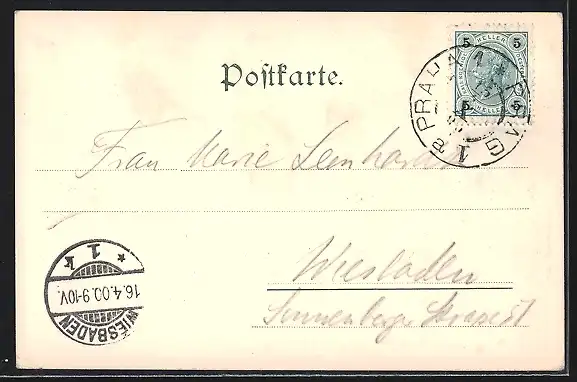 5 HELLER 5
5 HELLER 5
PRAHA 1 * PRAG
1 a
Postkarte.
Frau Marie Leonhard
Wiesbaden
Sonnenberger Strasse 51
* 1 k
16.4.00.9-10V.
WIESBADEN